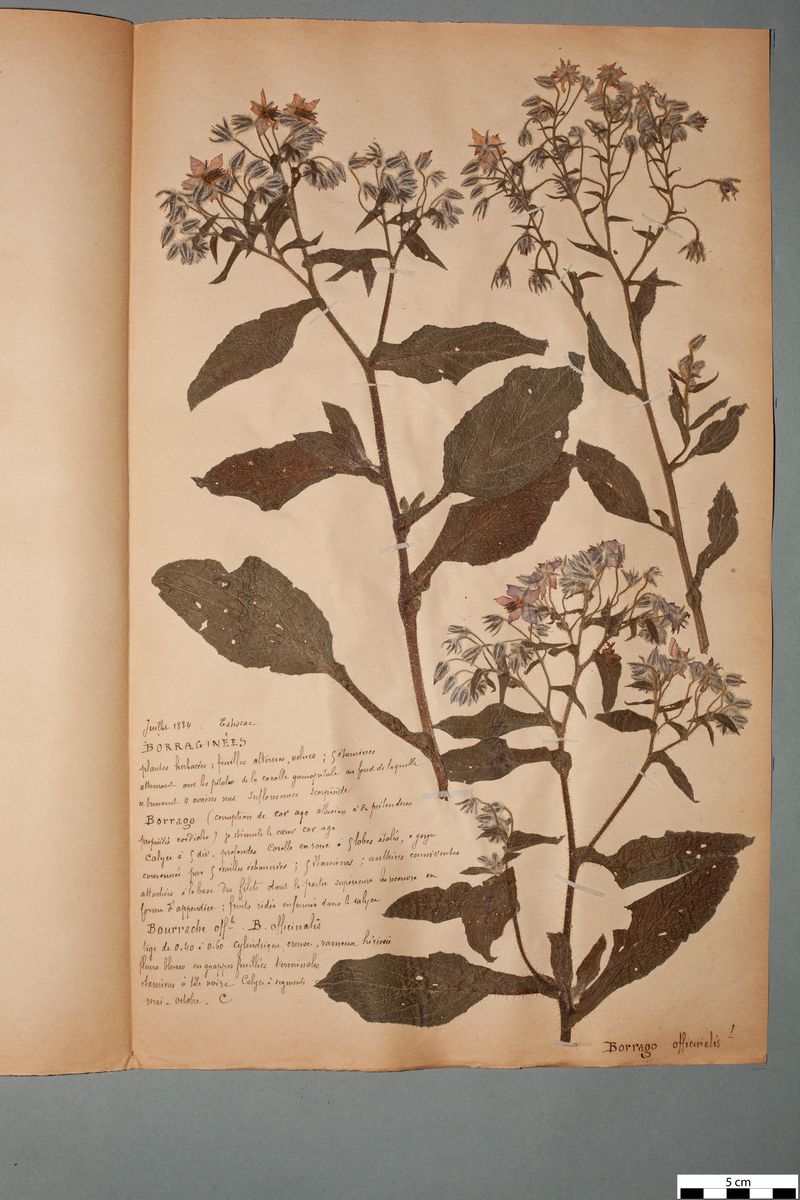 Juillet 1884. Estissac
BORRAGINÉES
plantes herbacées ; feuilles alternes, velues ; 5 étamines
alternant avec les pétales de la corolle gamopétale au fond de laquelle
se trouvent 4 ovaires nus Inflorescence scorpioïde
Borrago (corruption de cor ago allusion à de prétendues
propriétés cordiales) je stimule le cœur cor ago
Calyce à 5 div. profondes Corolle en roue à 5 lobes étalés, à gorge
couronnée par 5 écailles échancrées ; 5 étamines ; anthères conniventes
attachées à la base des filets dont la partie supérieure les recouvre en
forme d'appendice ; fruits ridés enfermés dans le calyce
Bourrache off. B. officinalis
tige de 0.40 à 0.60 cylindrique creuse, rameux hérissée
fleurs bleues en grappes feuillées terminales
étamines à tête noire Calyce à segments
mai - octobre. C
Borrago officinalis L
5 cm